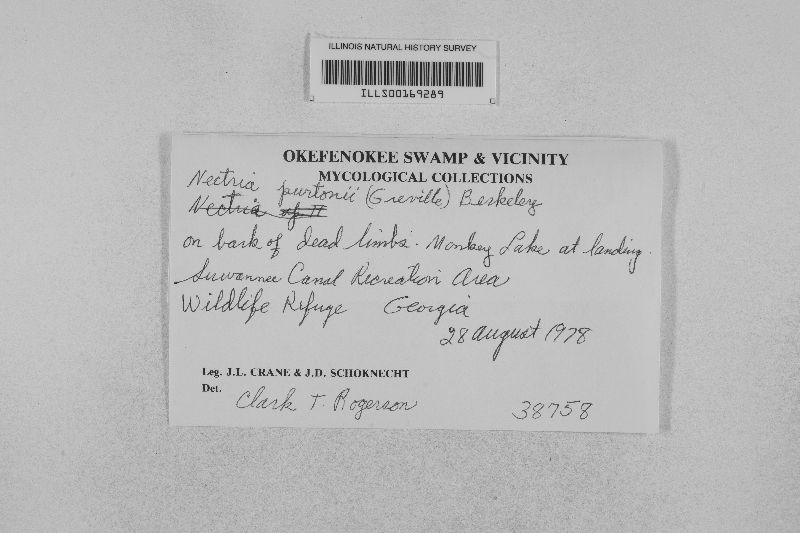 ILLINOIS NATURAL HISTORY SURVEY
ILLS00169289
OKEFENOKEE SWAMP & VICINITY
MYCOLOGICAL COLLECTIONS
Nectria purtonii (Greville) Berkeley
Nectria sp II
on bark of dead limbs. Monkey Lake at landing.
Suwannee Canal Recreation Area
Wildlife Refuge Georgia
28 August 1978
Leg. J.L. CRANE & J.D. SCHOKNECHT
Det.
Clark T. Rogerson
38758